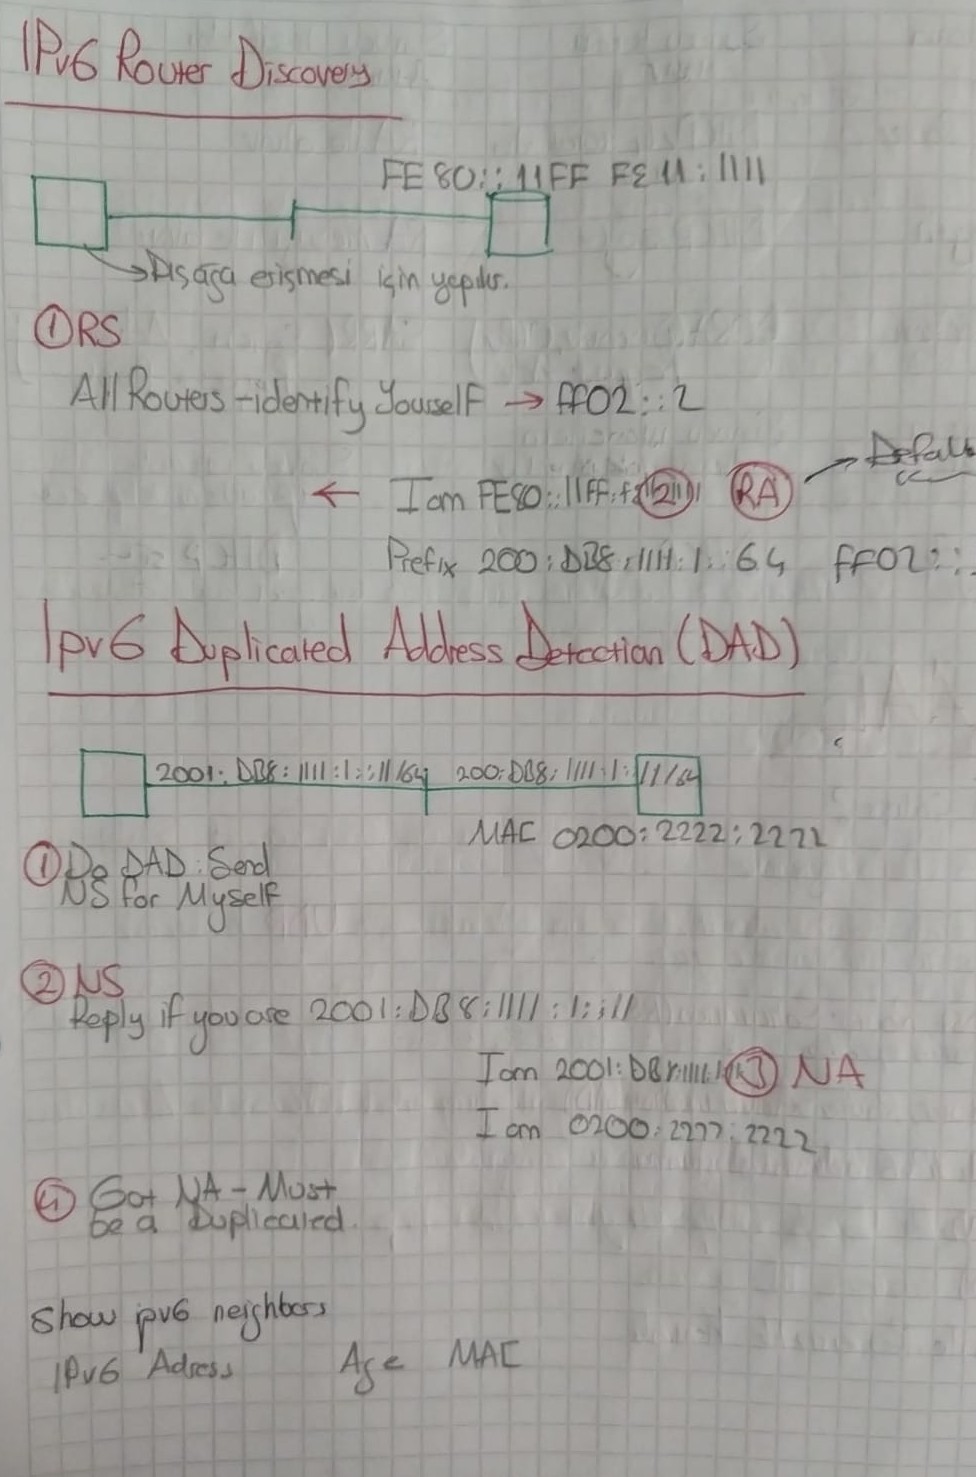 IPv6 Router Discovery
FE80::11FF FE11:1111
Dışağa erişmesi için yapılır.
① RS
All Routers -identify Yourself → ff02::2
→ Defaul
← I am FE80::11FF:f ② RA
Prefix 200:DB8:1111:1::64 ff02::
Ipv6 Duplicated Address Detection (DAD)
2001:DB8:1111:1::11/64 200:DB8:1111:1:11/64
MAC 0200:2222:2222
① Do DAD: Send
NS for Myself
② NS
Reply if you are 2001:DB8:1111:1::11
I am 2001:DB8:1111:1 ③ NA
I am 0200:2222:2222
④ Got NA - Must
be a Duplicated.
Show ipv6 neighbors
IPv6 Adress Age MAC